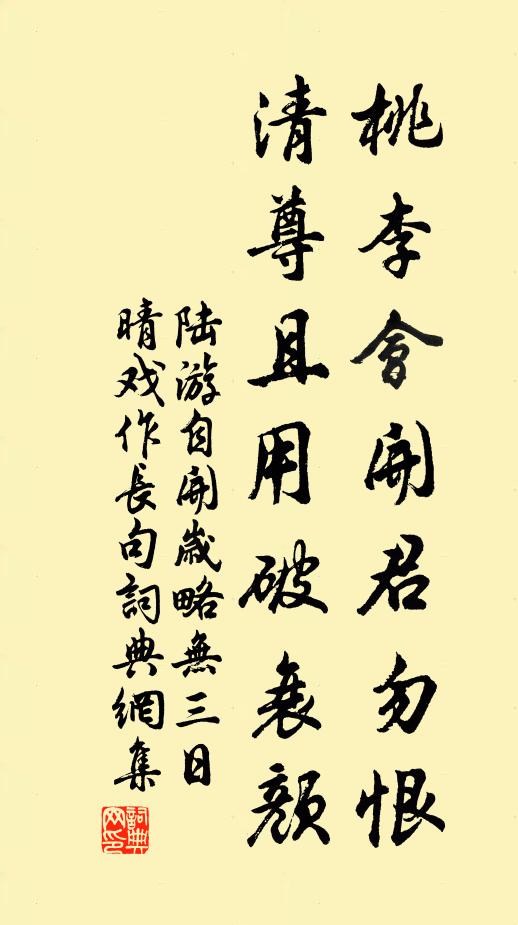 桃李會開君勿恨
清尊且用破衰顔
陆游自開歲略無三日
晴戏作長句詞典網集
詞典网印